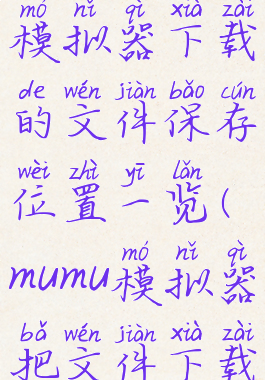 mó nǐ qì xià zài
模拟器下载
de wén jiàn bǎo cún
的文件保存
wèi zhì yī lǎn
位置一览(
mó nǐ qì
mumu模拟器
bǎ wén jiàn xià zài
把文件下载